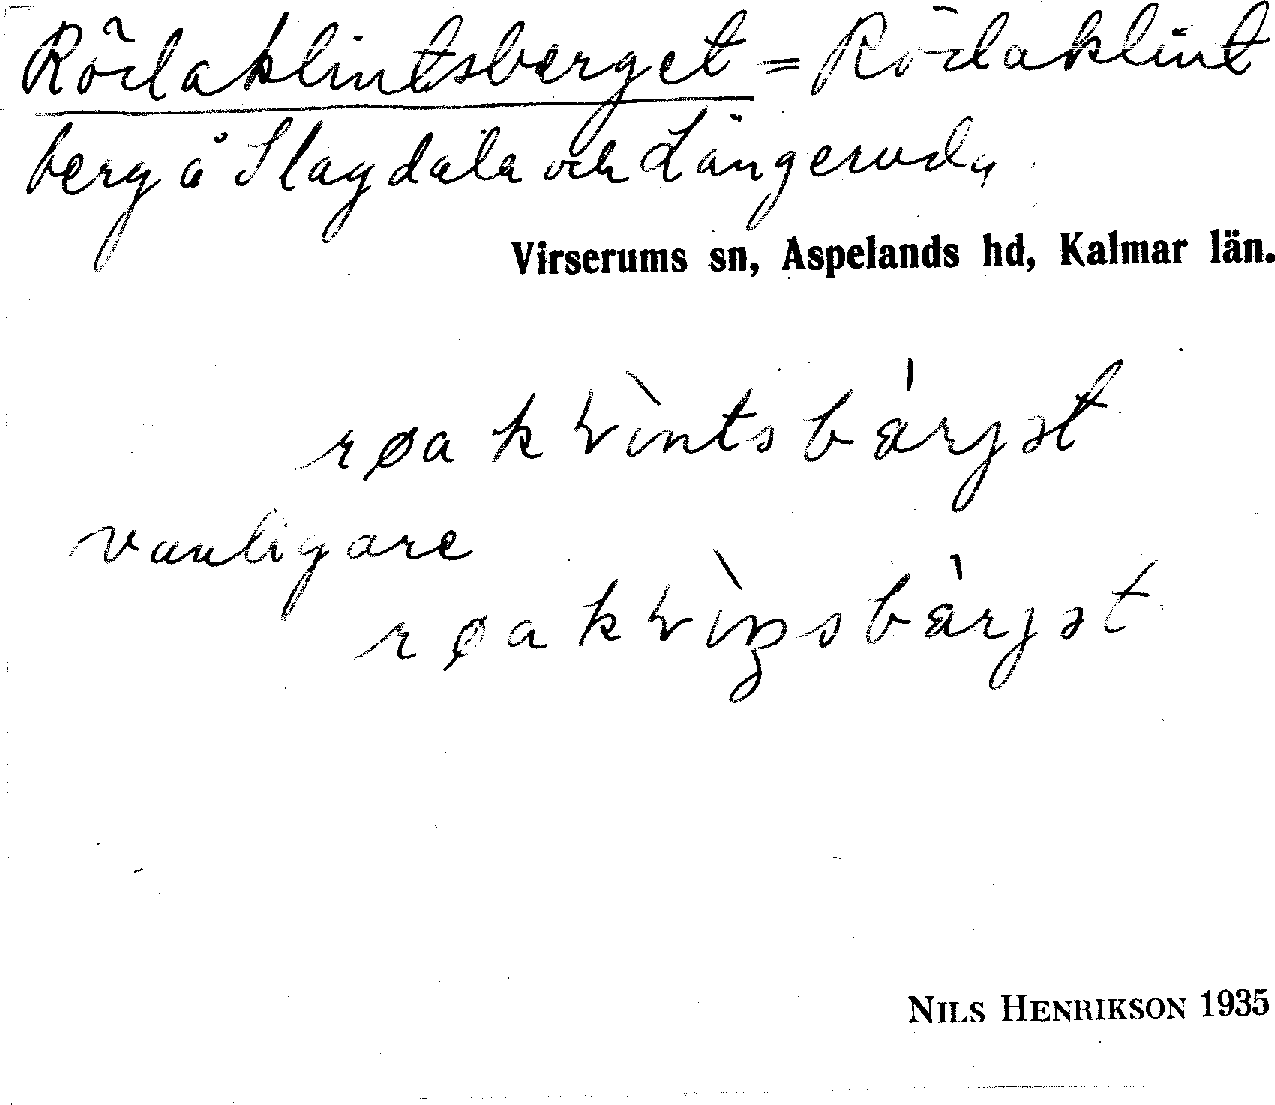 Rödaklintsberget = Rödaklint
berg å Slagdala och Långeruda
Virserums sn, Aspelands hd, Kalmar län.
vanligare
NILS HENRIKSON 1935